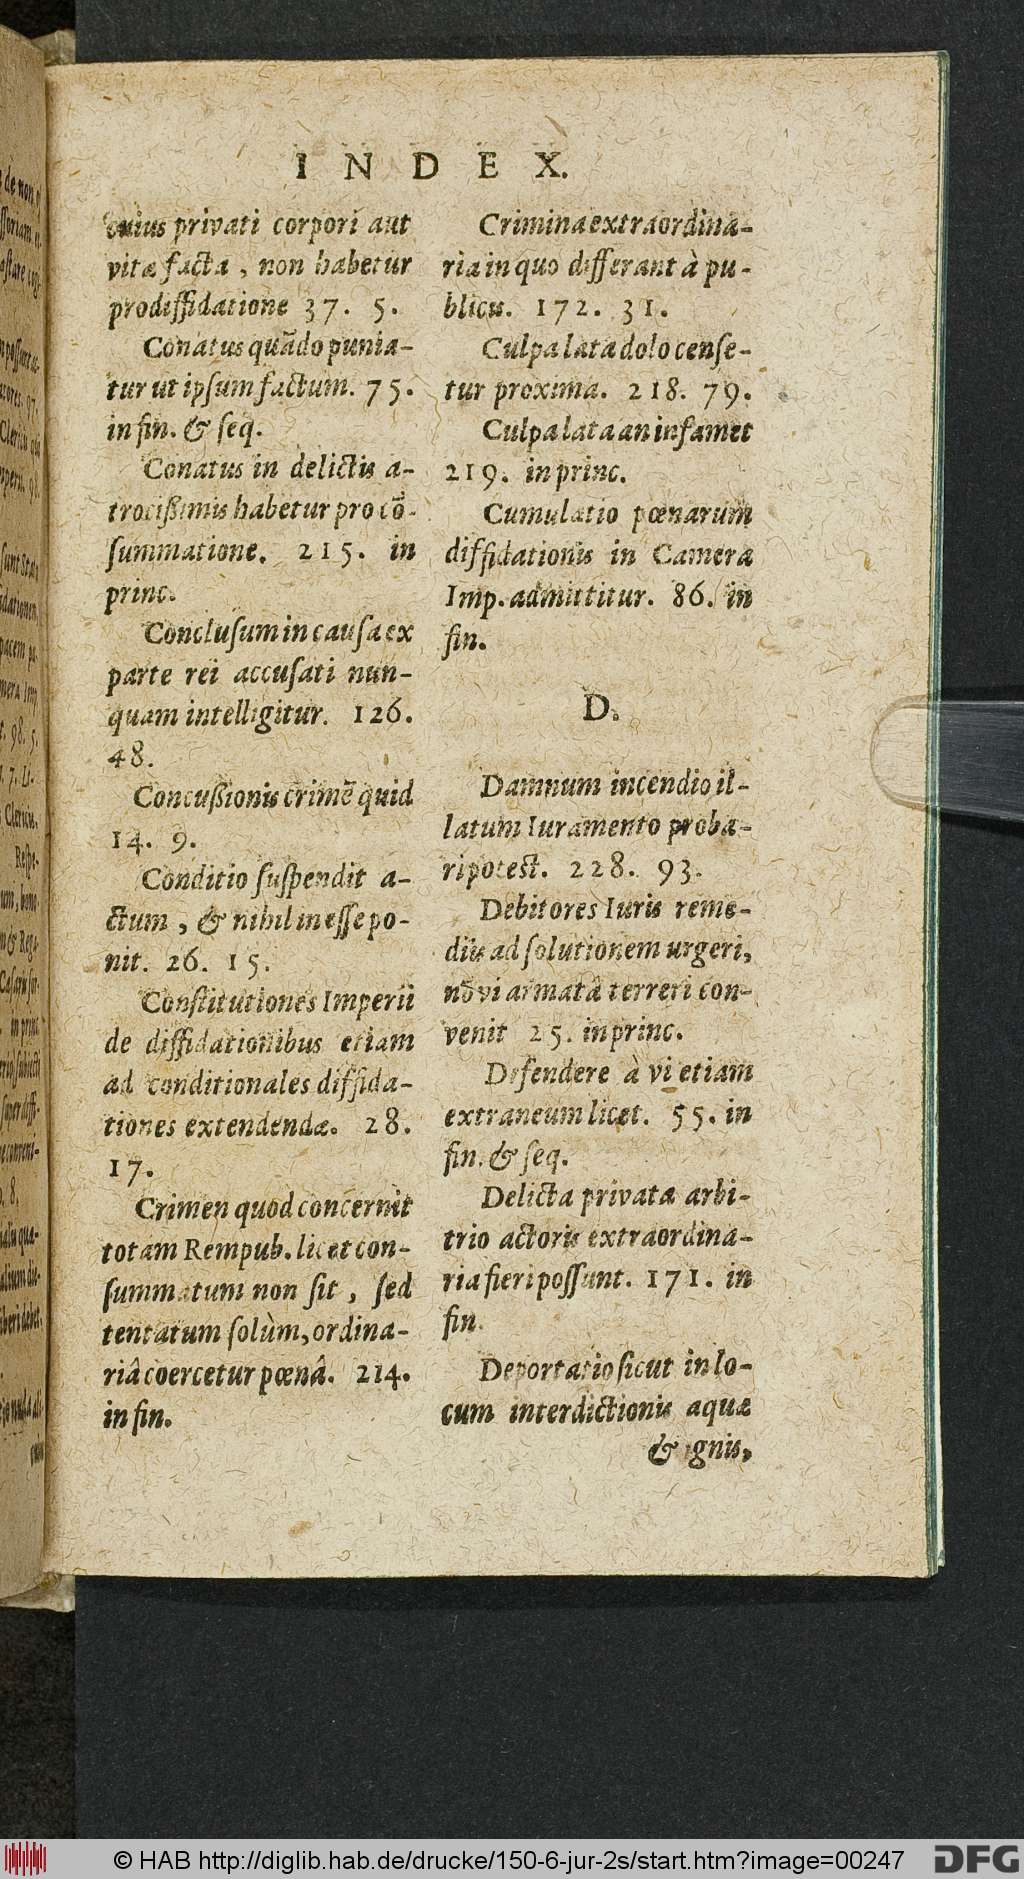 INDEX.
cuius privati corpori aut
vitæ facta, non habetur
prodiffidatione 37. 5.
Conatus quãdo punia-
tur ut ipsum factum. 75.
in fin. & seq.
Conatus in delictis a-
trocißimis habetur pro cō-
summatione. 215. in
princ.
Conclusum in causa ex
parte rei accusati nun-
quam intelligitur. 126.
48.
Concußionis crimē quid
14. 9.
Conditio suspendit a-
ctum, & nihil in esse po-
nit. 26. 15.
Constitutiones Imperii
de diffidationibus etiam
ad conditionales diffida-
tiones extendendæ. 28.
17.
Crimen quod concernit
totam Rempub. licet con-
summatum non sit, sed
tentatum solùm, ordina-
riâ coercetur pœnâ. 214.
in fin.
Crimina extraordina-
ria in quo differant à pu-
blicis. 172. 31.
Culpa lata dolo cense-
tur proxima. 218. 79.
Culpa lata an infamet
219. in princ.
Cumulatio pœnarum
diffidationis in Camera
Imp. admittitur. 86. in
fin.
D.
Damnum incendio il-
latum Iuramento proba-
ri potest. 228. 93.
Debitores Iuris reme-
diis ad solutionem urgeri,
nō vi armatâ terreri con-
venit 25. in princ.
Defendere à vi etiam
extraneum licet. 55. in
fin. & seq.
Delicta privata arbi-
trio actoris extraordina-
ria fieri possunt. 171. in
fin.
Deportatio sicut in lo-
cum interdictionis aquæ
& ignis,
© HAB http://diglib.hab.de/drucke/150-6-jur-2s/start.htm?image=00247
DFG